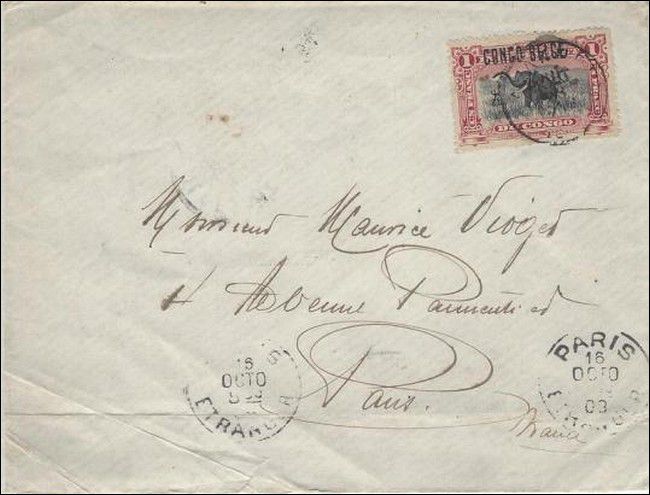 CONGO BELGE
1 1
UN FRANC
DE CONGO
Monsieur Maurice Vioget
4 Avenue Parmentier
Paris.
France
16
OCTO
ETRANGER
PARIS
16
OCTO
09
ETRANGER